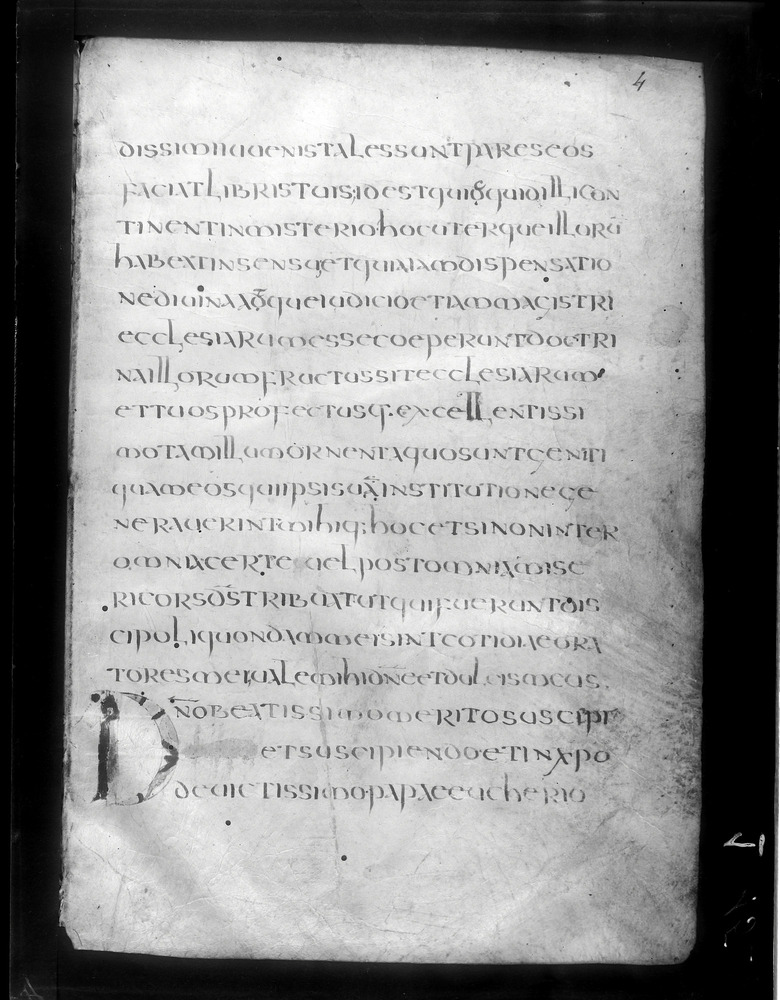 4
dissimiuuenistalessuntpareseos
faciatlibristuis;idestqui&quiillicon
tinentinmisteriohocuterqueillorū
habeatinsensuetquiaiamdispensatio
nediuinaadqueiudicioetiammagistri
ecclesiarumessecoeperuntdoctri
naillorumfructussitecclesiarum
ettuosprofectusq.excellentissi
motamillumornentaquosuntgeniti
quameosquiipsisuainstitutionege
neraverintmihiq;hocetsinoninter
omniacerte uelpostomniamise
ricorsdstribuatutquifueruntdis
cipuliquondammeisintcotidiaeora
toresmei;ualemihidneetdulcismeus.
Dnobeatissimomeritosuscipi
etsuscipiendoetinxpo
deuictissimopapaeeucherio